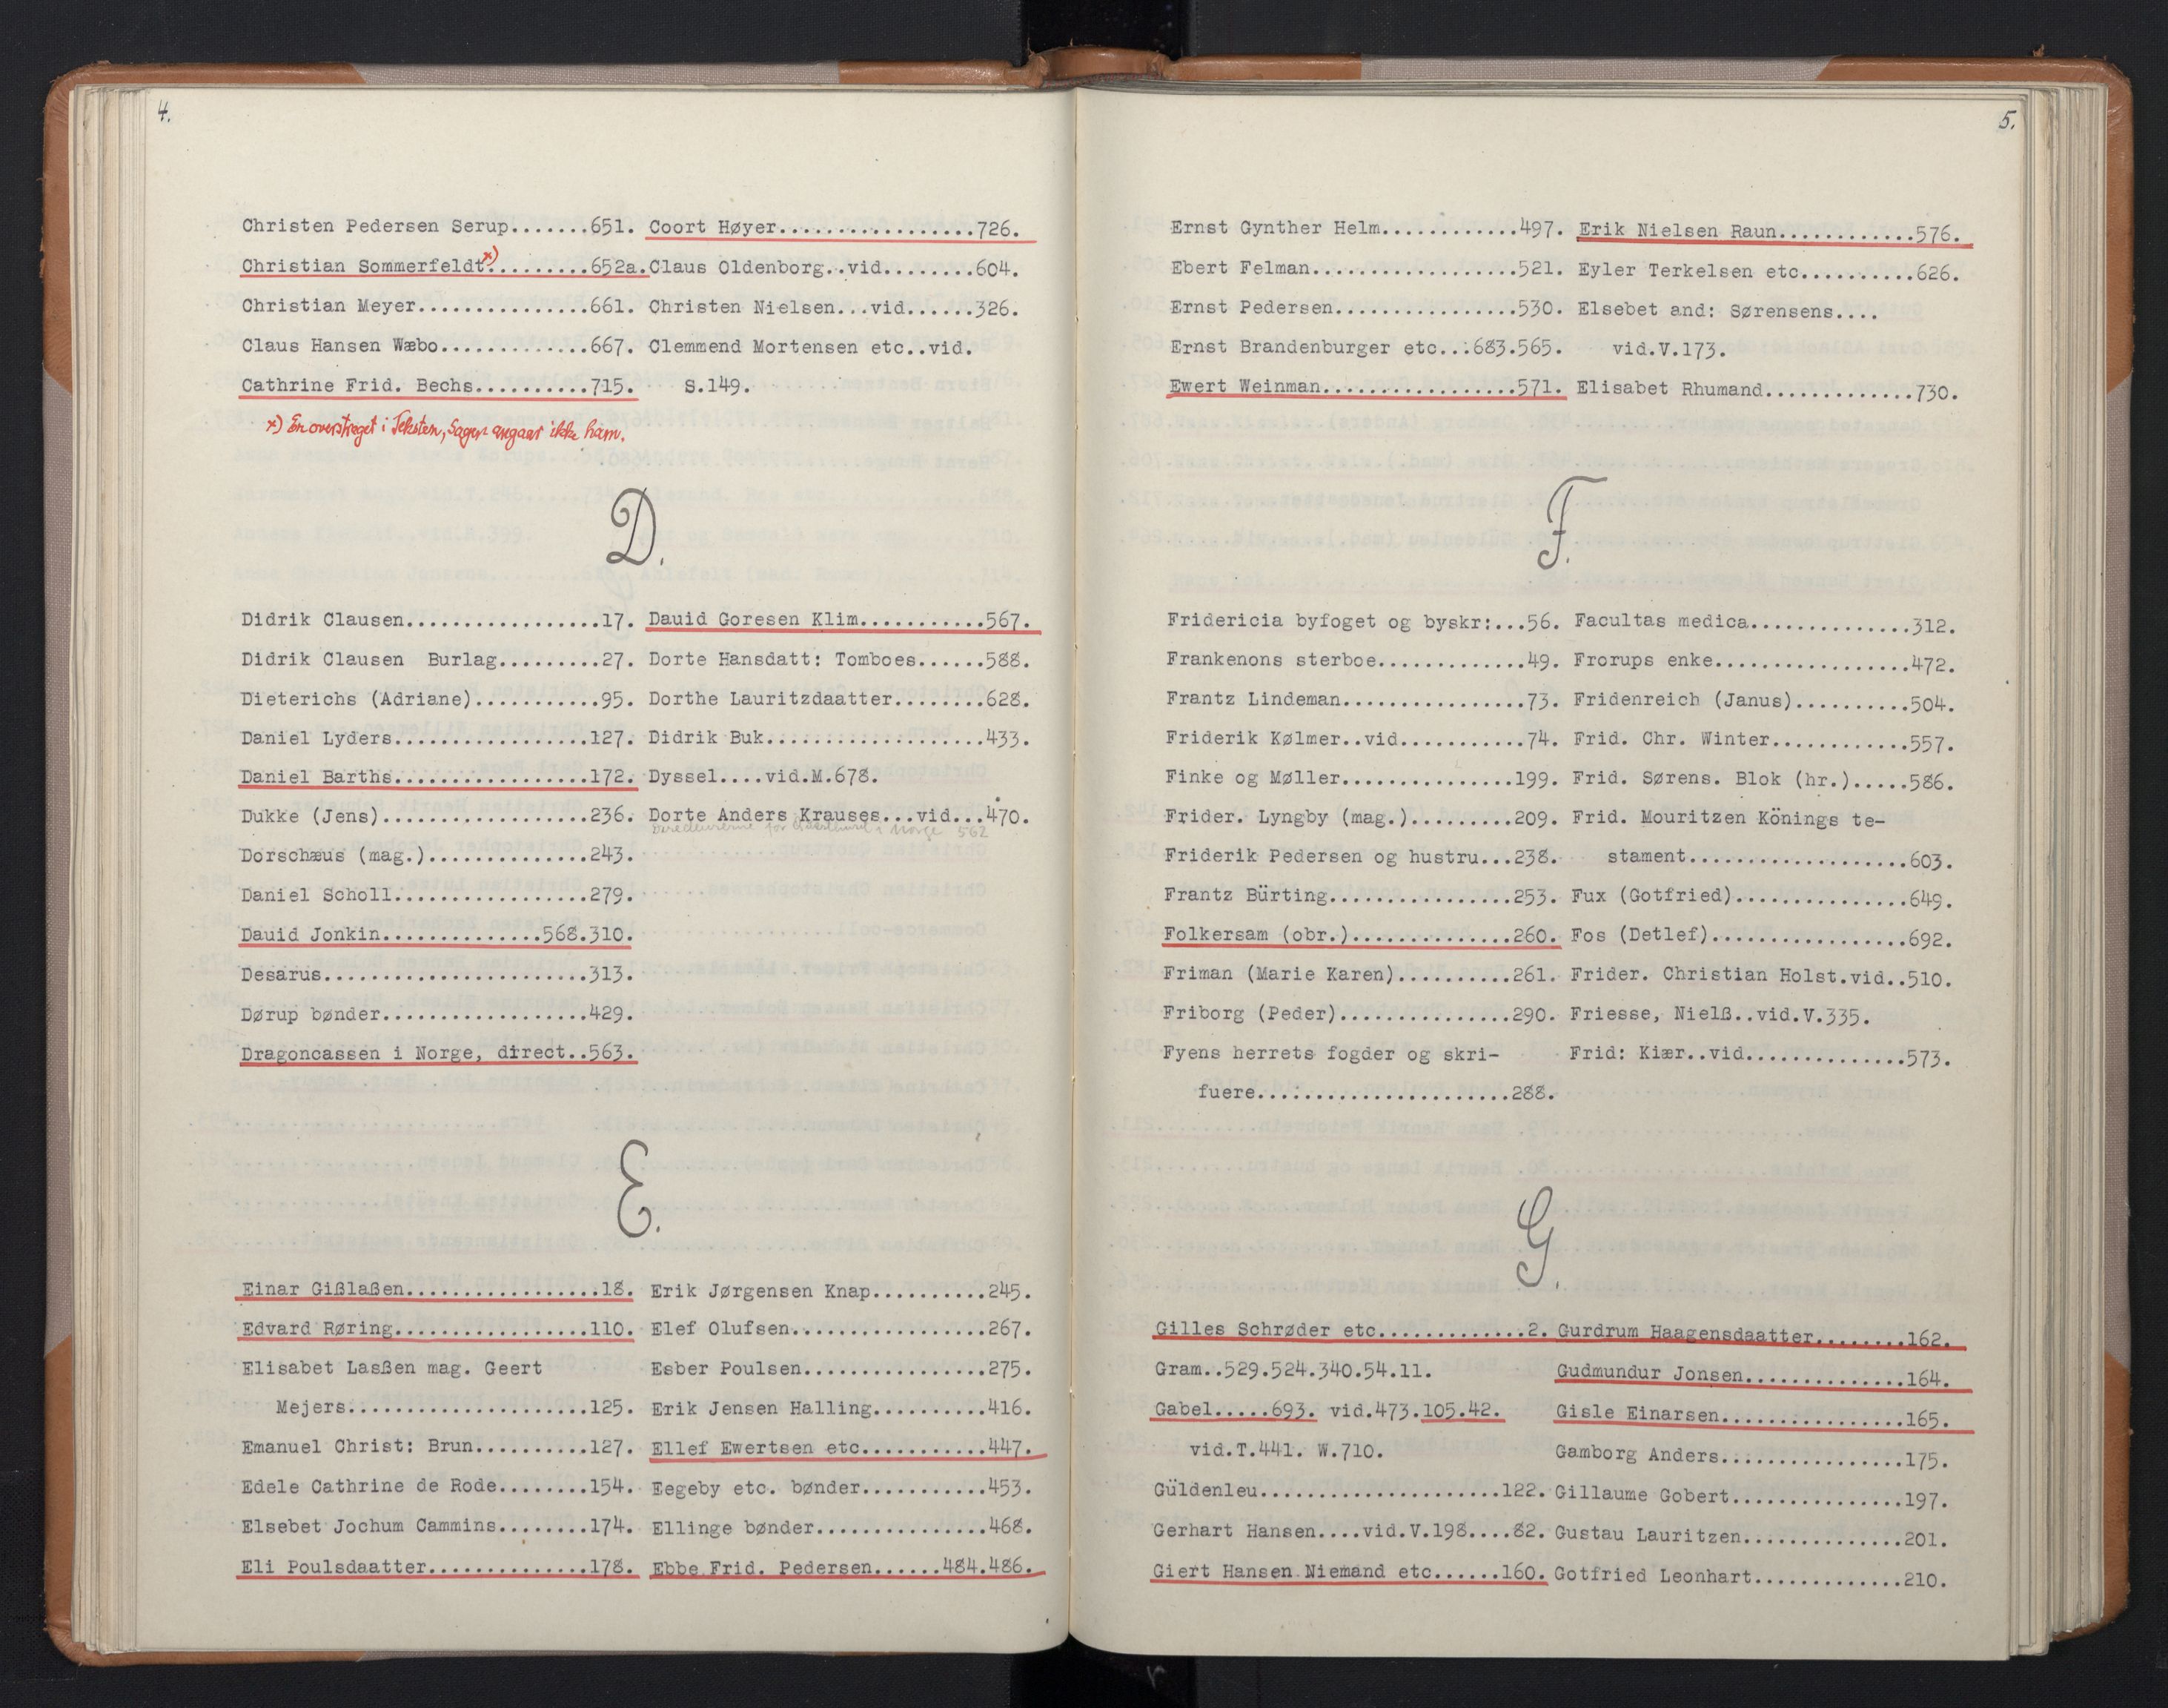 4.
Christen Pedersen Serup.......651.
Christian Sommerfeldt.x).........652a.
Christian Meyer...............661.
Claus Hansen Wæbo.............667.
Cathrine Frid. Bechs..........715.
x) En overstreget i Teksten, Sagen angaar ikke ham.
Coort Høyer.................726.
Claus Oldenborg..vid........604.
Christen Nielsen...vid......326.
Clemmend Mortensen etc..vid.
S.149.
D.
Didrik Clausen.................17.
Didrik Clausen  Burlag.........27.
Dieterichs (Adriane)...........95.
Daniel Lyders.................127.
Daniel Barths.................172.
Dukke (Jens)..................236.
Dorschæus (mag.)..............243.
Daniel Scholl.................279.
Dauid Jonkin..............568.310.
Desarus.......................313.
Dørup bønder..................429.
Dragoncassen i Norge, direct..563.
Dauid Goresen Klim...........567.
Dorte Hansdatt: Tomboes......588.
Dorthe Lauritzdaatter........628.
Didrik Buk...................433.
Dyssel....vid.M.678.
Dorte Anders Krauses...vid...470.
i Norge 562
E.
Einar Gißlaßen.................18.
Edvard Røring.................110.
Elisabet Lasßen mag. Geert
Mejers.....................125.
Emanuel Christ: Brun..........127.
Edele Cathrine de Rode........154.
Elsebet Jochum Cammins........174.
Eli Poulsdaatter..............178.
Erik Jørgensen Knap..........245.
Elef Olufsen.................267.
Esber Poulsen................275.
Erik Jensen Halling..........416.
Ellef Ewertsen etc...........447.
Eegeby etc. bønder...........453.
Ellinge bønder...............468.
Ebbe Frid. Pedersen......484.486.
5.
Ernst Gynther Helm............497.
Ebert Felman..................521.
Ernst Pedersen................530.
Ernst Brandenburger etc...683.565.
Ewert Weinman.................571.
Erik Nielsen Raun............576.
Eyler Terkelsen etc..........626.
Elsebet and: Sørensens....
vid.V.173.
Elisabet Rhumand.............730.
F.
Fridericia byfoget og byskr:...56.
Frankenons sterboe.............49.
Frantz Lindeman................73.
Friderik Kølmer..vid...........74.
Finke og Møller...............199.
Frider. Lyngby (mag.).........209.
Friderik Pedersen og hustru...238.
Frantz Bürting................253.
Folkersam (obr.)..............260.
Friman (Marie Karen)..........261.
Friborg (Peder)...............290.
Fyens herrets fogder og skri-
fuere......................288.
Facultas medica..............312.
Frorups enke.................472.
Fridenreich (Janus)..........504.
Frid. Chr. Winter............557.
Frid. Sørens. Blok (hr.).....586.
Frid. Mouritzen Könings te-
stament...................603.
Fux (Gotfried)...............649.
Fos (Detlef).................692.
Frider. Christian Holst.vid..510.
Friesse, Nielß..vid.V.335.
Frid: Kiær..vid..............573.
G.
Gilles Schrøder etc.............2.
Gram..529.524.340.54.11.
Gabel.....693. vid.473.105.42.
vid.T.441. W.710.
Güldenleu.....................122.
Gerhart Hansen....vid.V.198....82.
Giert Hansen Niemand etc......160.
Gurdrum Haagensdaatter........162.
Gudmundur Jonsen..............164.
Gisle Einarsen................165.
Gamborg Anders................175.
Gillaume Gobert...............197.
Gustau Lauritzen..............201.
Gotfried Leonhart.............210.